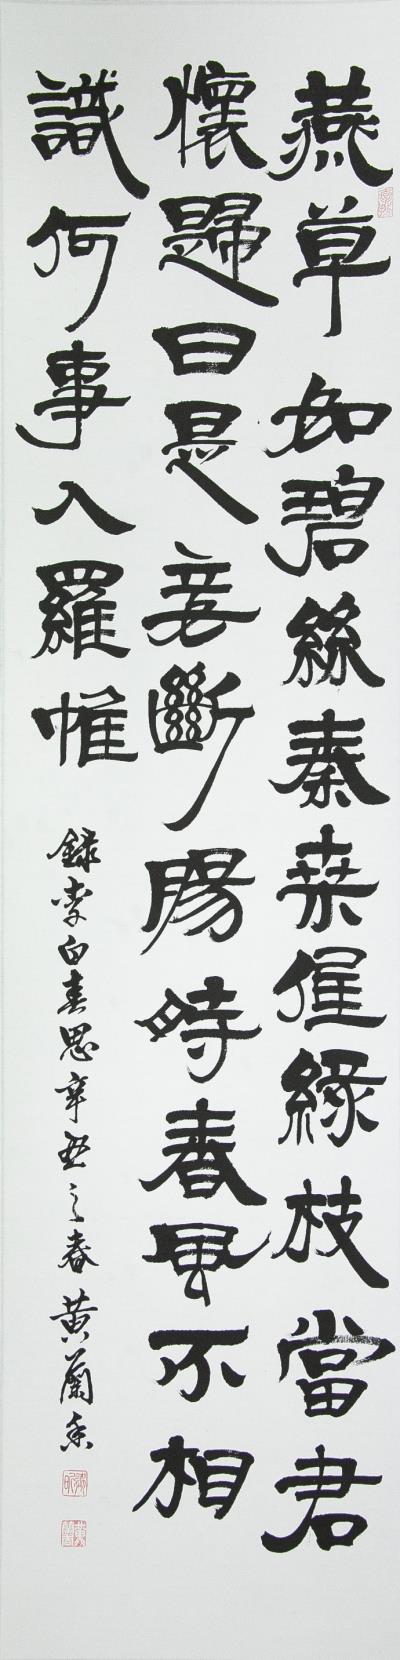 燕草如碧絲秦桑低緑枝當君
懷歸日是妾斷腸時春風不相
識何事入羅帷
録李白春思辛丑之春黃蘭香